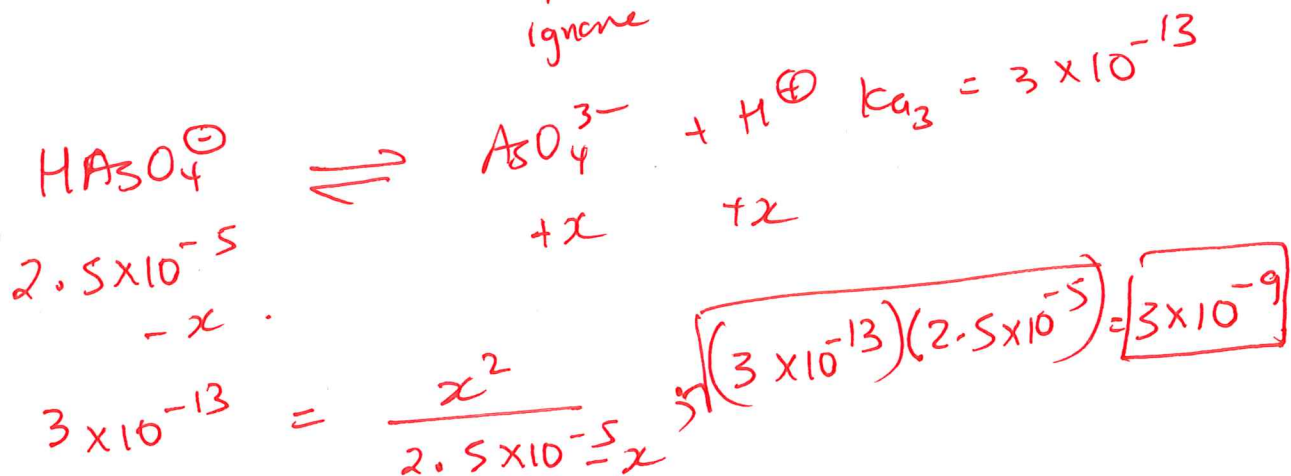 ignore
HAsO₄⊖ ⇌ AsO₄³⁻ + H⊕ Ka₃ = 3 × 10⁻¹³
2.5×10⁻⁵ +x +x
-x .
3 × 10⁻¹³ = x² / 2.5 × 10⁻⁵ - x √(3 × 10⁻¹³)(2.5×10⁻⁵) = 3 × 10⁻⁹